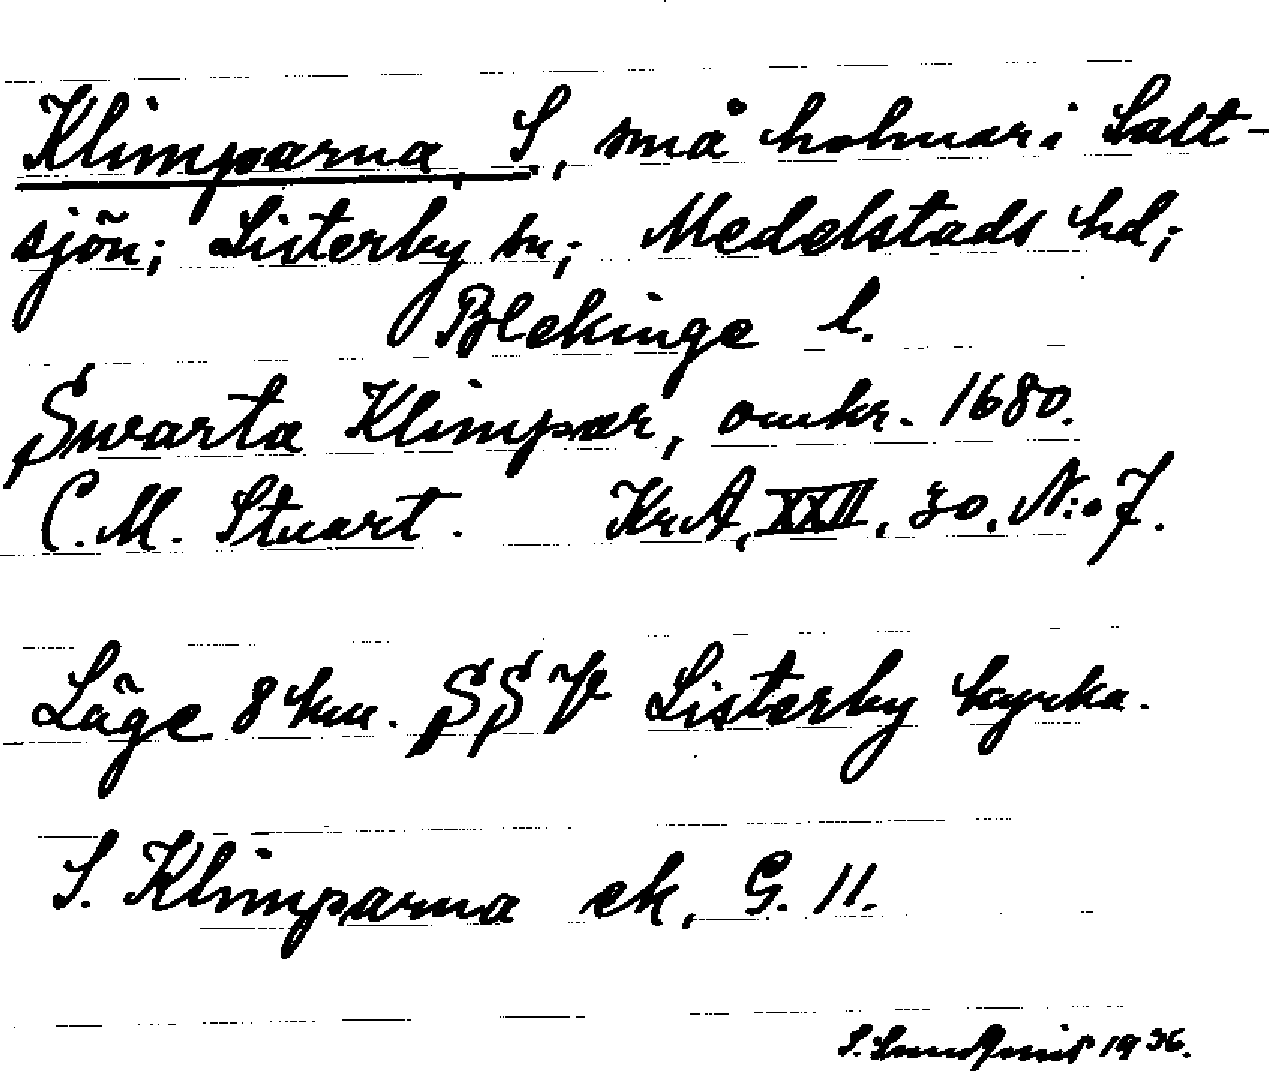 Klimparna, S., små holmar i Salt-
sjön; Listerby sn; Medelstads hd;
Blekinge l.
Swarta Klimpar, omkr. 1680.
C. M. Stuart. KrA, XXII, 30, N:o 7.
Läge 8 km. SSV Listerby kyrka.
S. Klimparna ek, G. 11.
S. 1936.